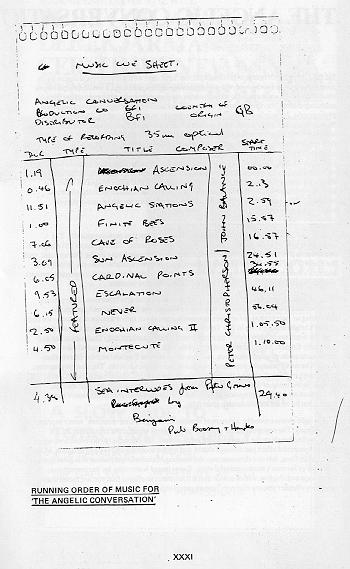 MUSIC CUE SHEET.
ANGELIC CONVERSATION
PRODUCTION CO BFI COUNTRY OF ORIGIN GB
DISTRIBUTOR BFI
TYPE OF RECORDING 35mm optical
DUR TYPE TITLE COMPOSER START TIME
1.19 ASCENSION 00.00
0.46 ENOCHIAN CALLING 2.13
11.51 ANGELIC STATIONS 2.59
1.00 FINITE BEES 15.57
7.06 CAVE OF ROSES 16.57
3.09 SUN ASCENSION 24.51
6.05 CARDINAL POINTS 34.55
9.53 ESCALATION 46.11
6.15 NEVER 56.04
2.50 ENOCHIAN CALLING II 1.05.50
4.50 MONTECUTE 1.10.00
FEATURED
PETER CHRISTOPHERSON / JOHN BALANCE
4.34 SEA INTERLUDES from Peter Grimes 29.40
by
Benjamin
Pub Boosey + Hawkes
RUNNING ORDER OF MUSIC FOR
'THE ANGELIC CONVERSATION'
XXXI